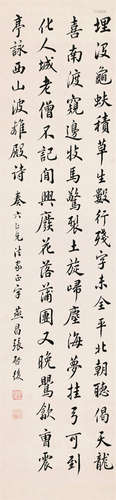 埋沒龜趺積草生數行殘字未全平北朝聽偈天龍
喜南渡窺邊牧馬驚製土旋嗁塵海夢挂弓可到
化人城老僧不記閒興廢花落蒲團又晚鸎歙曹震
亭詠西山波羅殿詩 六仁兄法家正字 張啟後